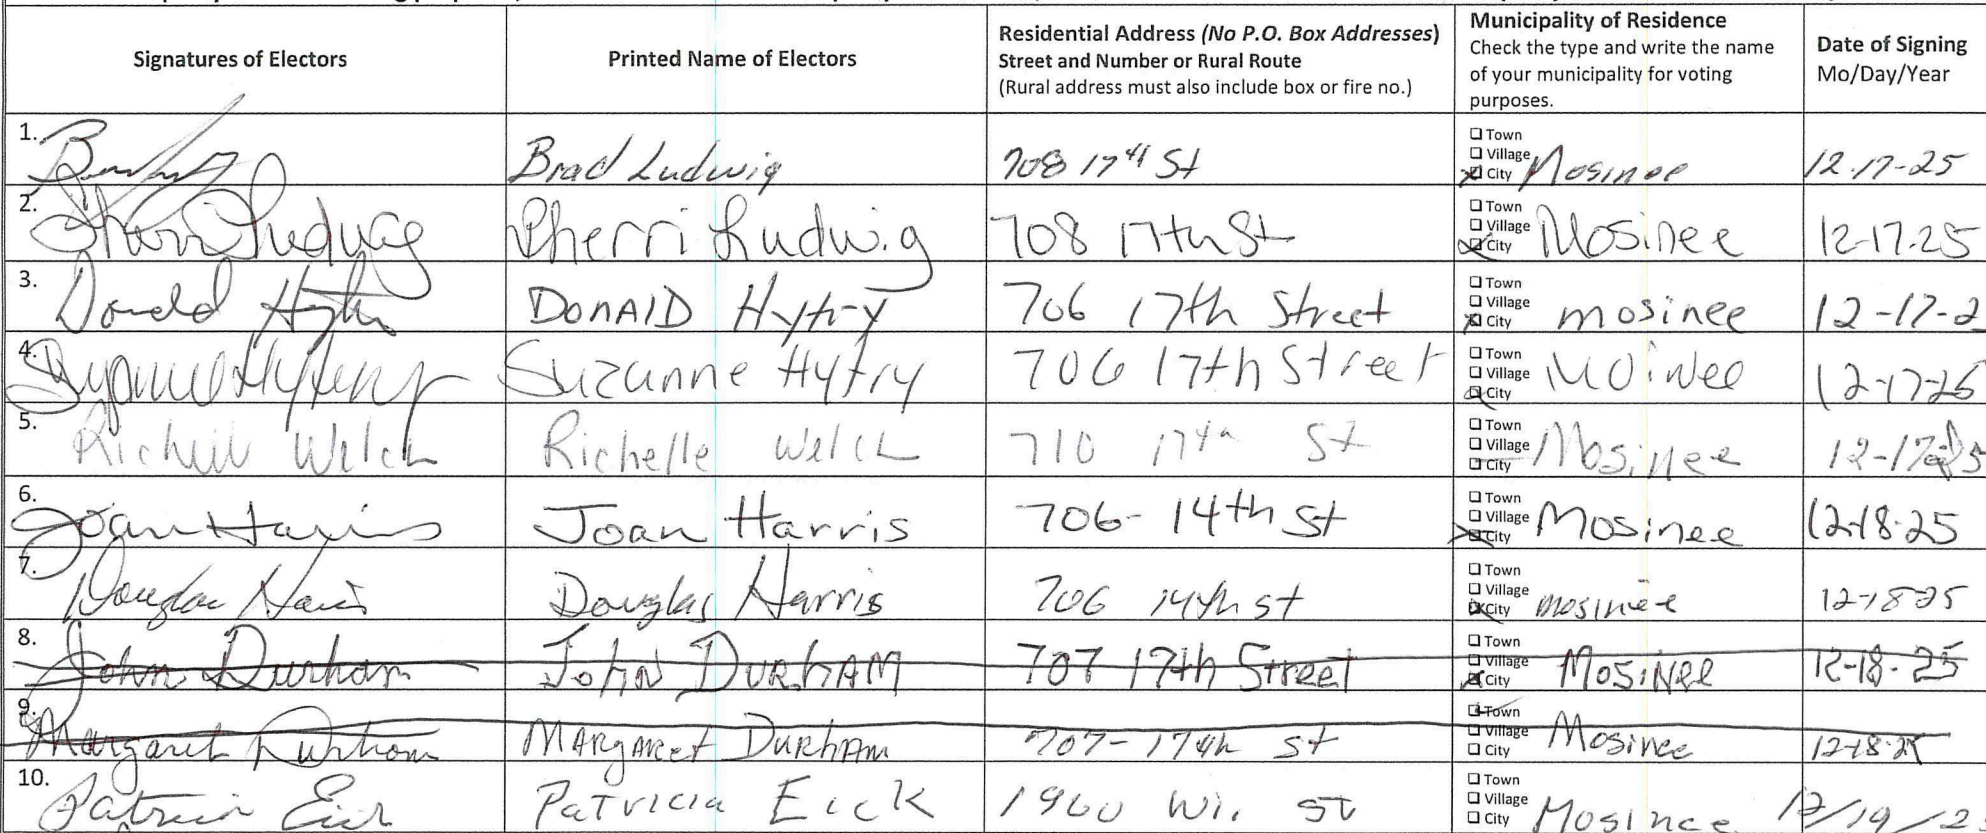 Signatures of Electors
Printed Name of Electors
Residential Address (No P.O. Box Addresses)
Street and Number or Rural Route
(Rural address must also include box or fire no.)
Municipality of Residence
Check the type and write the name
of your municipality for voting
purposes.
Date of Signing
Mo/Day/Year
1. Brad Ludwig 708 17th St Town Village City Mosinee 12-17-25
2. Sherri Ludwig Sherri Ludwig 708 17th St Town Village City Mosinee 12-17-25
3. Donald Hytry DONALD Hytry 706 17th Street Town Village City mosinee 12-17-2
4. Suzanne Hytry Suzanne Hytry 706 17th Street Town Village City MOiNee 12-17-25
5. Richelle Welch Richelle Welch 710 17th St Town Village City Mosinee 12-17-25
6. Joan Harris Joan Harris 706- 14th St Town Village City Mosinee 12-18-25
7. Douglas Harris Douglas Harris 706 14th st Town Village City mosinee 12-18-25
8. John Durham JOHN DURHAM 707 17th Street Town Village City MOSiNee 12-18-25
9. Margaret Durham MARGARET DURHAM 707-17th St Town Village City Mosinee 12-18-25
10. Patricia Eick PATRICIA Eick 1960 Wi. St Town Village City Mosinee 12/19/2